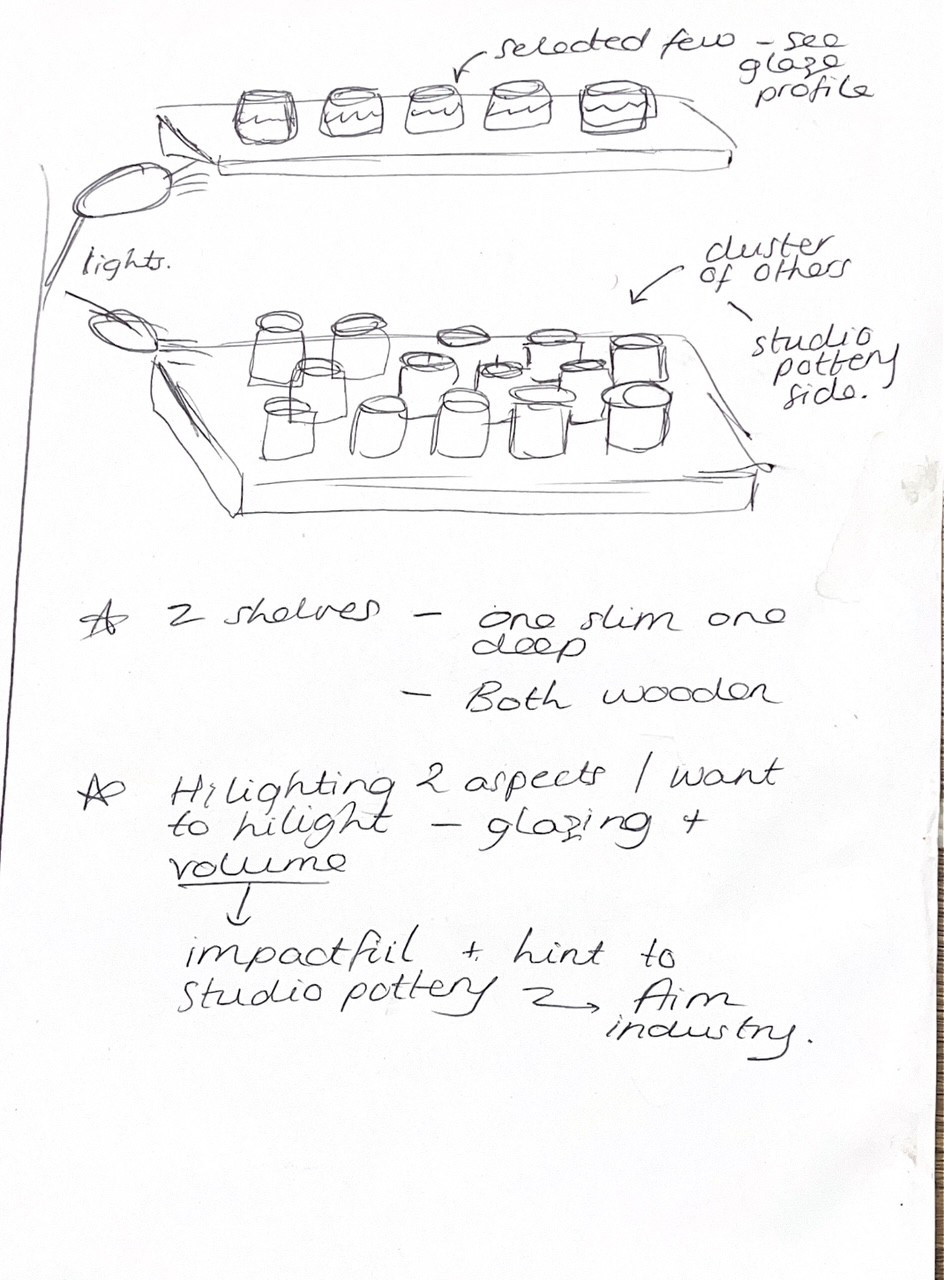 selected few - see
glaze
profile
lights.
cluster
of others
studio
pottery
side.
☆ 2 shelves - one slim one
deep
- Both wooden
☆ Hilighting 2 aspects I want
to hilight - glazing +
volume
impactful + hint to
studio pottery → Aim
industry.